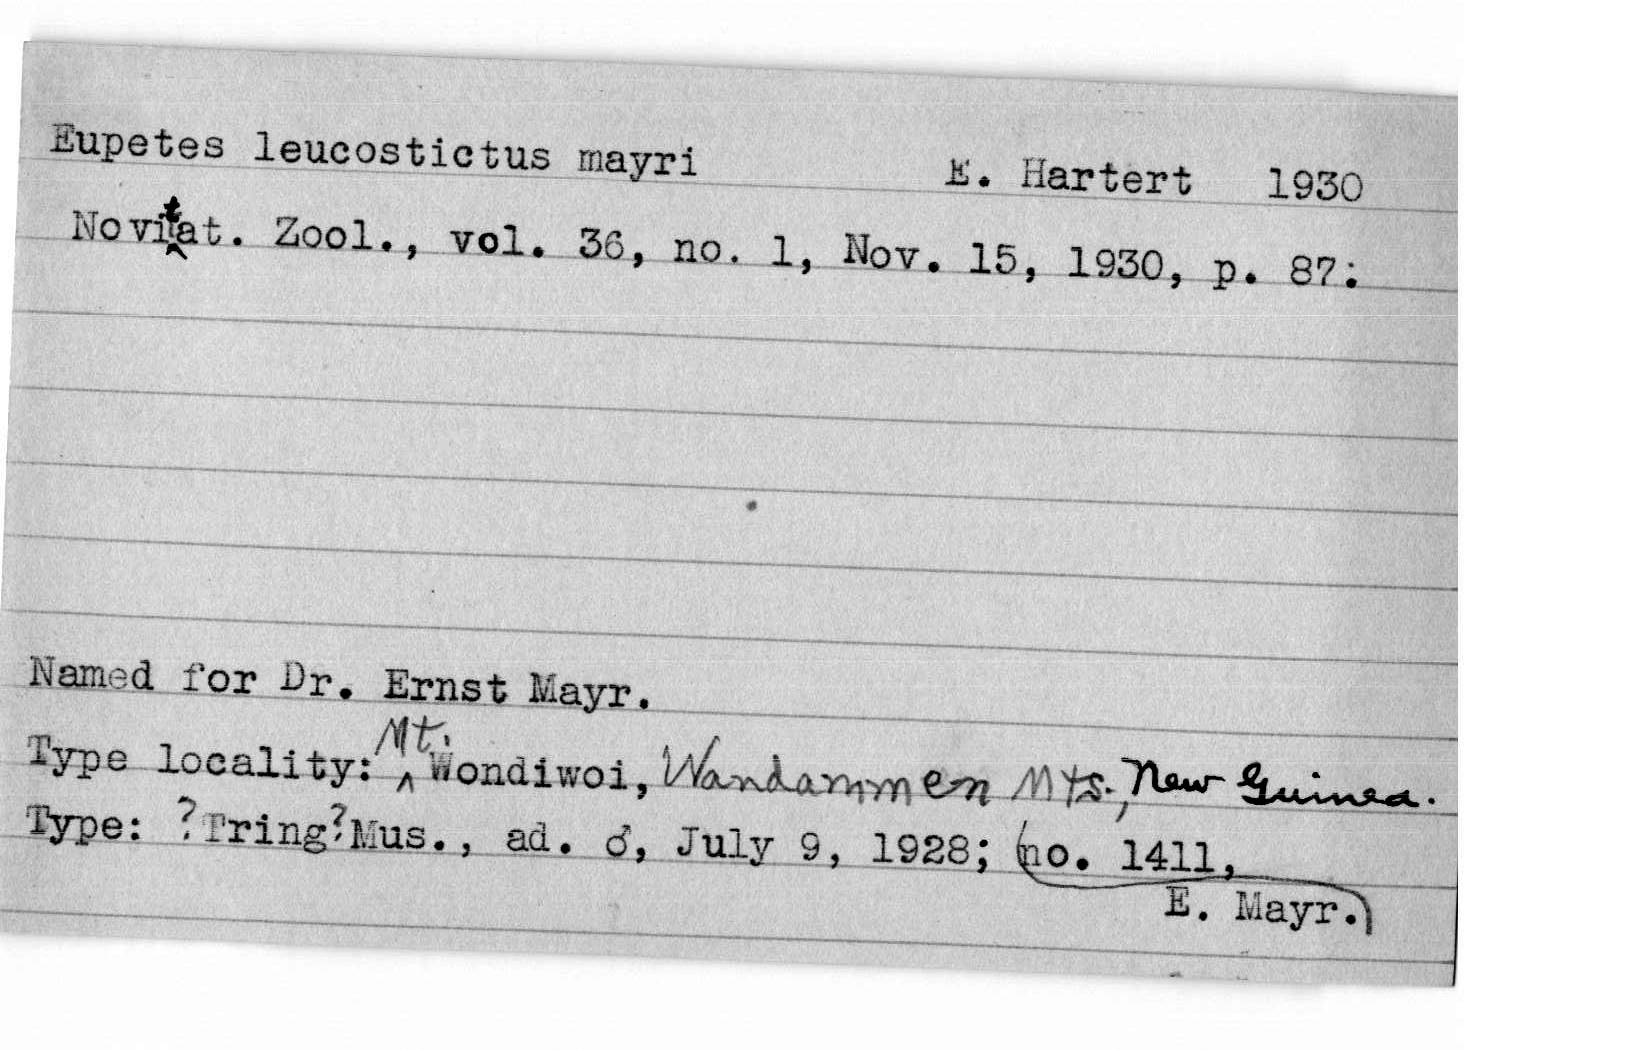 Eupetes leucostictus mayri E. Hartert 1930
Novitat. Zool., vol. 36, no. 1, Nov. 15, 1930, p. 87:
Named for Dr. Ernst Mayr.
Type locality: Mt. Wondiwoi, Wandammen Mts., New Guinea.
Type: ?Tring? Mus., ad. ♂, July 9, 1928; (no. 1411,
E. Mayr.)